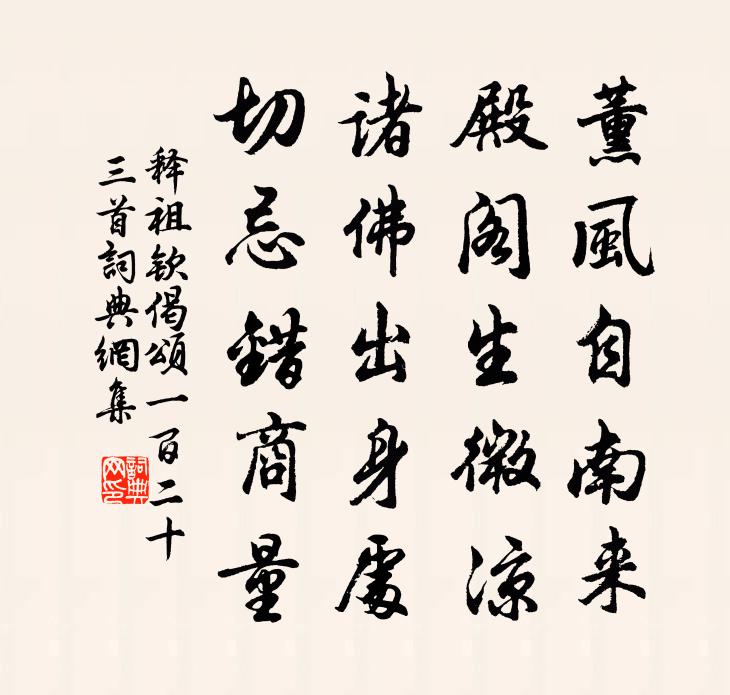 薰風自南来
殿阁生微涼
諸佛出身處
切忌錯商量
释祖钦偈颂一百二十
三首詞典網集
詞典
网印